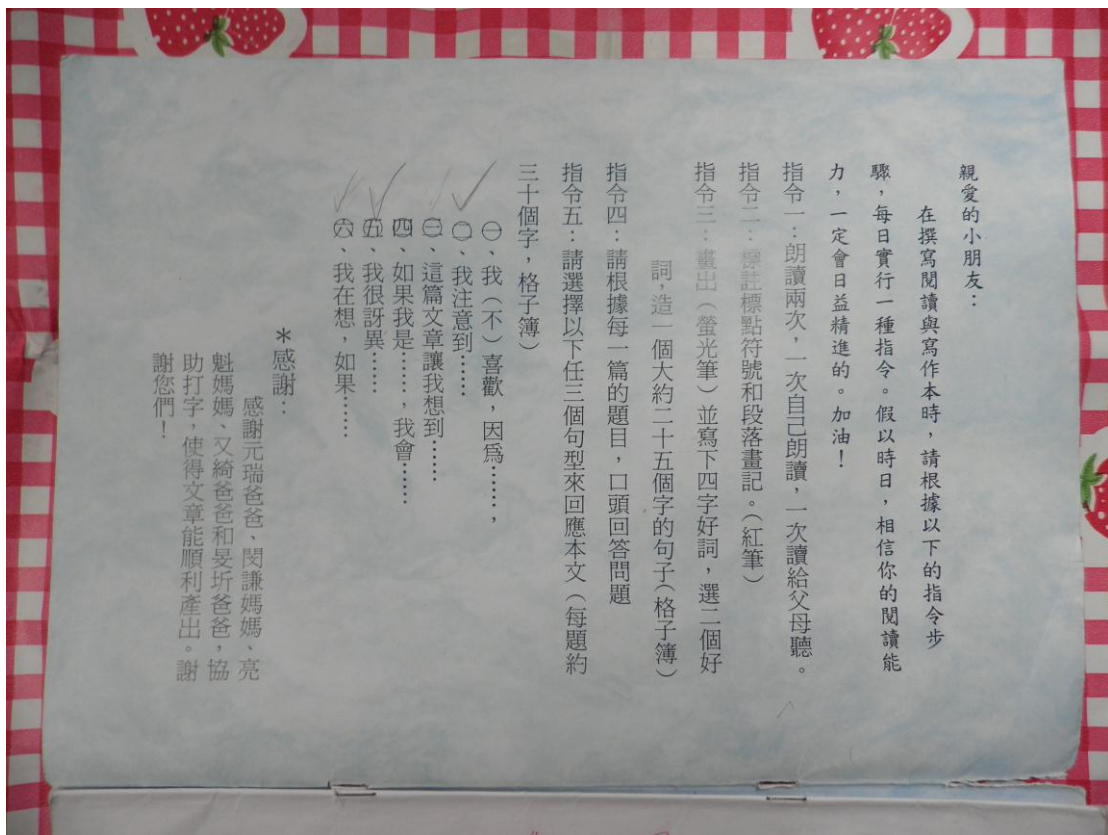 親愛的小朋友：
在撰寫閱讀與寫作本時，請根據以下的指令步
驟，每日實行一種指令。假以時日，相信你的閱讀能
力，一定會日益精進的。加油！
指令一：朗讀兩次，一次自己朗讀，一次讀給父母聽。
指令二：標註標點符號和段落畫記。（紅筆）
指令三：畫出（螢光筆）並寫下四字好詞，選二個好
詞，造一個大約二十五個字的句子（格子簿）
指令四：請根據每一篇的題目，口頭回答問題
指令五：請選擇以下任三個句型來回應本文（每題約
三十個字，格子簿）
㊀、我（不）喜歡，因爲……，
㊁、我注意到……
㊂、這篇文章讓我想到……
㊃、如果我是……，我會……
㊄、我很訝異……
㊅、我在想，如果……
＊感謝：
感謝元瑞爸爸、閔謙媽媽、亮
魁媽媽、又綺爸爸和旻圻爸爸，協
助打字，使得文章能順利產出。謝
謝您們！